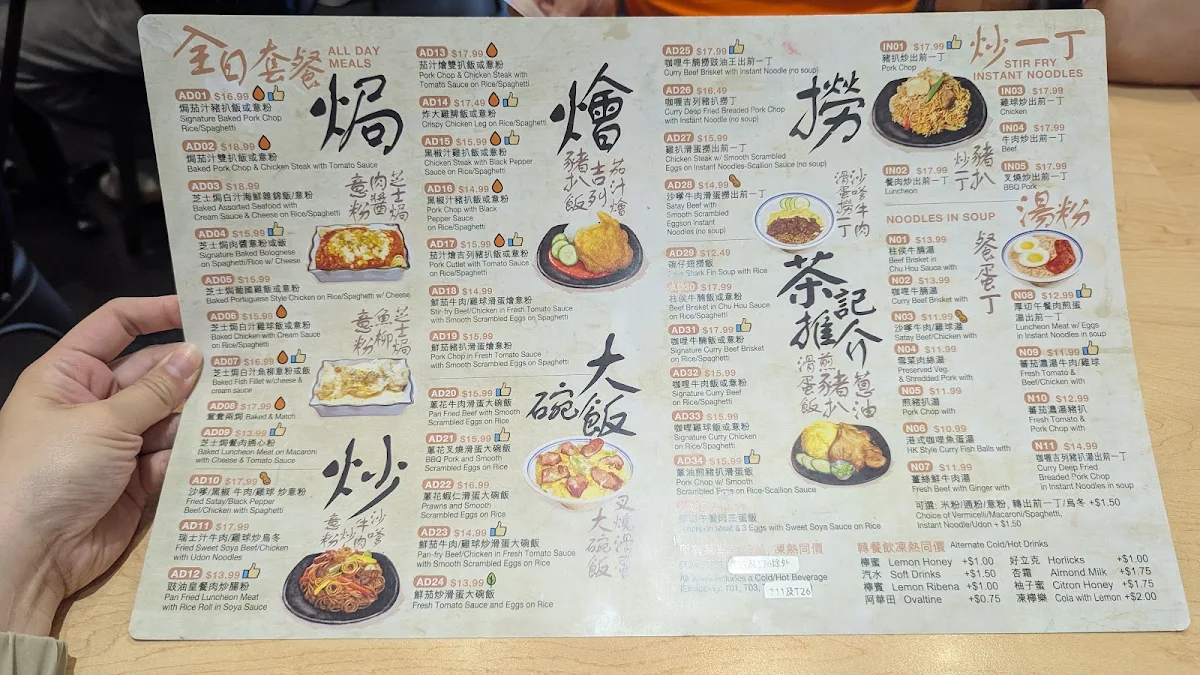 全日套餐 ALL DAY
MEALS
AD01 $16.99
焗茄汁豬扒飯或意粉
Signature Baked Pork Chop
Rice/Spaghetti
AD02 $18.99
焗茄汁雙扒飯或意粉
Baked Pork Chop & Chicken Steak with Tomato Sauce
AD03 $18.99
芝士焗白汁海鮮雜錦飯/意粉
Baked Assorted Seafood with
Cream Sauce & Cheese on Rice/Spaghetti
AD04 $15.99
芝士焗肉醬意粉或飯
Signature Baked Bolognese
on Spaghetti/Rice w/ Cheese
AD05 $15.99
芝士焗葡國雞飯或意粉
Baked Portuguese Style Chicken on Rice/Spaghetti w/ Cheese
AD06 $15.99
芝士焗白汁雞飯或意粉
Baked Chicken with Cream Sauce
on Rice/Spaghetti
AD07 $16.99
芝士焗白汁魚柳意粉或飯
Baked Fish Fillet w/cheese &
cream sauce
AD08 $17.99
鴛鴦兩焗 Baked & Match
AD09 $13.99
芝士焗餐肉通心粉
Baked Luncheon Meat on Macaroni
with Cheese & Tomato Sauce
AD10 $17.99
沙嗲/黑椒 牛肉/雞球 炒意粉
Fried Satay/Black Pepper
Beef/Chicken with Spaghetti
AD11 $17.99
瑞士汁牛肉/雞球炒烏冬
Fried Sweet Soya Beef/Chicken
with Udon Noodles
AD12 $13.99
豉油皇餐肉炒腸粉
Pan Fried Luncheon Meat
with Rice Roll in Soya Sauce
焗
芝士焗
肉醬
意粉
芝士焗
魚柳
意粉
炒
沙嗲
牛肉
炒
意粉
AD13 $17.99
茄汁燴雙扒飯或意粉
Pork Chop & Chicken Steak with
Tomato Sauce on Rice/Spaghetti
AD14 $17.49
炸大雞脾飯或意粉
Crispy Chicken Leg on Rice/Spaghetti
AD15 $15.99
黑椒汁雞扒飯或意粉
Chicken Steak with Black Pepper
Sauce on Rice/Spaghetti
AD16 $14.99
黑椒汁豬扒飯或意粉
Pork Chop with Black
Pepper Sauce
on Rice/Spaghetti
AD17 $15.99
茄汁燴吉列豬扒飯或意粉
Pork Cutlet with Tomato Sauce
on Rice/Spaghetti
AD18 $14.99
鮮茄牛肉/雞球滑蛋燴意粉
Stir-fry Beef/Chicken in Fresh Tomato Sauce
with Smooth Scrambled Eggs on Spaghetti
AD19 $15.99
鮮茄豬扒滑蛋燴意粉
Pork Chop in Fresh Tomato Sauce
with Smooth Scrambled Eggs on Spaghetti
AD20 $15.99
薑花牛肉滑蛋大碗飯
Pan Fried Beef with Smooth
Scrambled Eggs on Rice
AD21 $15.99
薑花叉燒滑蛋大碗飯
BBQ Pork and Smooth
Scrambled Eggs on Rice
AD22 $16.99
薑花蝦仁滑蛋大碗飯
Prawns and Smooth
Scrambled Eggs on Rice
AD23 $14.99
鮮茄牛肉/雞球滑蛋大碗飯
Pan-fry Beef/Chicken in Fresh Tomato Sauce
with Smooth Scrambled Eggs on Rice
AD24 $13.99
鮮茄炒滑蛋大碗飯
Fresh Tomato Sauce and Eggs on Rice
燴
茄汁燴
吉列
豬扒飯
大碗飯
叉燒滑蛋
大碗飯
AD25 $17.99
咖哩牛腩撈豉油王出前一丁
Curry Beef Brisket with Instant Noodle (no soup)
AD26 $16.49
咖喱吉列豬扒撈丁
Curry Deep Fried Breaded Pork Chop
with Instant Noodle (no soup)
AD27 $15.99
雞扒滑蛋撈出前一丁
Chicken Steak w/ Smooth Scrambled
Eggs on Instant Noodles-Scallion Sauce (no soup)
AD28 $14.99
沙嗲牛肉滑蛋撈出前一丁
Satay Beef with
Smooth Scrambled
Eggson Instant
Noodles (no soup)
AD29 $12.49
碗仔翅撈飯
Shark Fin Soup with Rice
$17.99
柱侯牛腩飯或意粉
Beef Brisket in Chu Hou Sauce
on Rice/Spaghetti
AD31 $17.99
咖哩牛腩飯或意粉
Signature Curry Beef Brisket
on Rice/Spaghetti
AD32 $15.99
咖哩牛肉飯或意粉
Signature Curry Beef
on Rice/Spaghetti
AD33 $15.99
咖哩雞球飯或意粉
Signature Curry Chicken
on Rice/Spaghetti
AD34 $15.99
蔥油煎豬扒滑蛋飯
Pork Chop w/ Smooth
Scrambled Eggs on Rice-Scallion Sauce
Meat & 3 Eggs with Sweet Soya Sauce on Rice
凍熱同價
a Cold/Hot Beverage
T01, T03, T11及T26
撈
沙嗲牛肉
滑蛋撈丁
茶記推介
蔥油
煎豬扒
滑蛋飯
IN01 $17.99
豬扒炒出前一丁
Pork Chop
IN02 $17.99
餐肉炒出前一丁
Luncheon
炒一丁
STIR FRY
INSTANT NOODLES
IN03 $17.99
雞球炒出前一丁
Chicken
IN04 $17.99
牛肉炒出前一丁
Beef
IN05 $17.99
叉燒炒出前一丁
BBQ Pork
豬扒
炒丁
NOODLES IN SOUP 湯粉
餐蛋丁
N01 $13.99
柱侯牛腩湯
Beef Brisket in
Chu Hou Sauce with
N02 $13.99
咖哩牛腩湯
Curry Beef Brisket
N03 $11.99
沙嗲牛肉/雞球湯
Satay Beef/Chicken with
N04 $11.99
雪菜肉絲湯
Preserved Veg.
& Shredded Pork with
N05 $11.99
煎豬扒湯
Pork Chop with
N06 $10.99
港式咖哩魚蛋湯
HK Style Curry Fish Balls with
N07 $11.99
薑絲鮮牛肉湯
Fresh Beef with Ginger with
N08 $12.99
厚切午餐肉煎蛋
湯出前一丁
Luncheon Meat w/ Eggs
in Instant Noodles in Soup
N09 $11.99
蕃茄濃湯牛肉/雞球
Fresh Tomato &
Beef/Chicken with
N10 $12.99
蕃茄濃湯豬扒
Fresh Tomato &
Pork Chop with
N11 $14.99
咖喱吉列豬扒湯出前一丁
Curry Deep Fried
Breaded Pork Chop
in Instant Noodles in soup
可選: 米粉/通粉/意粉, 轉出前一丁/烏冬 +$1.50
Choice of Vermicelli/Macaroni/Spaghetti,
Instant Noodle/Udon + $1.50
轉餐飲凍熱同價 Alternate Cold/Hot Drinks
檸蜜 Lemon Honey +$1.00 好立克 Horlicks +$1.00
汽水 Soft Drinks +$1.50 杏霜 Almond Milk +$1.75
檸賓 Lemon Ribena +$1.00 柚子蜜 Citron Honey +$1.75
阿華田 Ovaltine +$0.75 凍檸樂 Cola with Lemon +$2.00